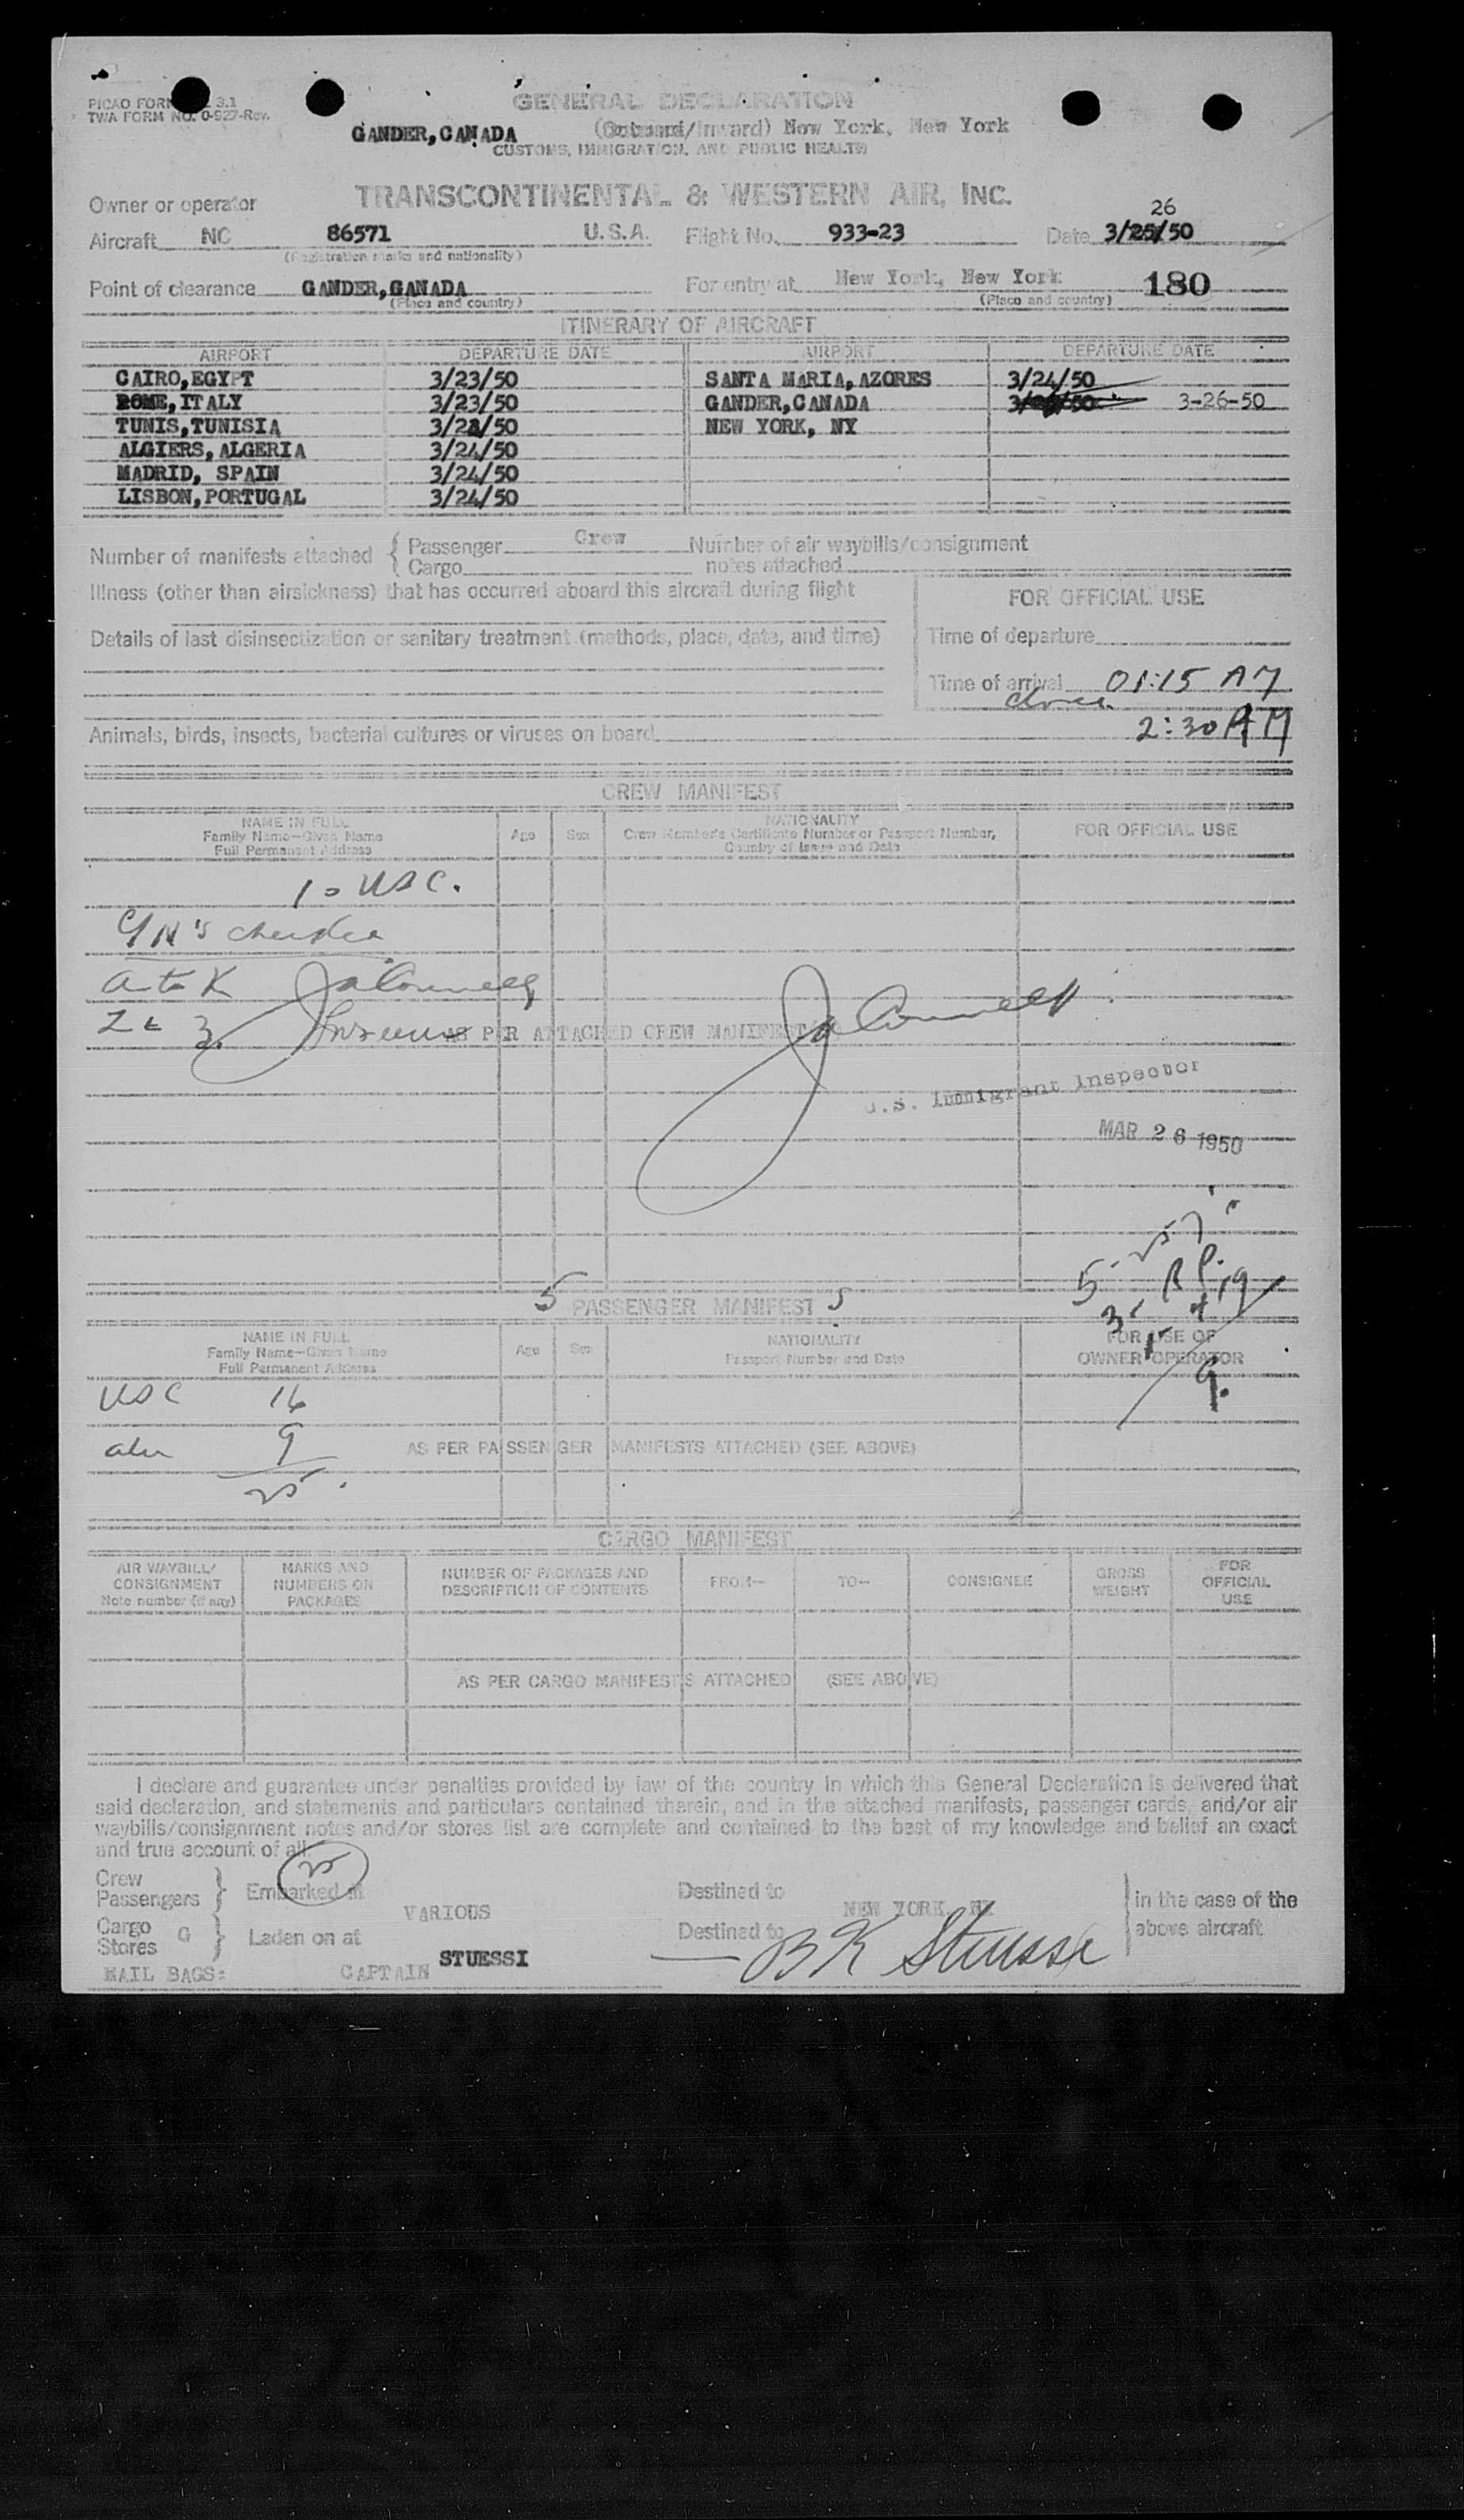 PICAO FORM 3.1
TWA FORM NO. 0-927-Rev.
GENERAL DECLARATION
GANDER,CANADA (Outward/Inward) New York, New York
CUSTOMS, IMMIGRATION, AND PUBLIC HEALTH
Owner or operator TRANSCONTINENTAL & WESTERN AIR, INC.
26
Aircraft NC 86571 U.S.A. Flight No. 933-23 Date 3/25/50
(Registration marks and nationality)
Point of clearance GANDER,CANADA For entry at New York, New York 180
(Place and country) (Place and country)
ITINERARY OF AIRCRAFT
AIRPORT DEPARTURE DATE AIRPORT DEPARTURE DATE
CAIRO,EGYPT 3/23/50 SANTA MARIA,AZORES 3/24/50
ROME,ITALY 3/23/50 GANDER,CANADA 3-26-50
TUNIS,TUNISIA 3/23/50 NEW YORK, NY
ALGIERS,ALGERIA 3/24/50
MADRID, SPAIN 3/24/50
LISBON,PORTUGAL 3/24/50
Number of manifests attached { Passenger Crew Number of air waybills/consignment
Cargo notes attached
Illness (other than airsickness) that has occurred aboard this aircraft during flight
FOR OFFICIAL USE
Details of last disinsectization or sanitary treatment (methods, place, date, and time)
Time of departure
Time of arrival 01:15 AM
2:30 AM
Animals, birds, insects, bacterial cultures or viruses on board
CREW MANIFEST
NAME IN FULL
Family Name--Given Name
Full Permanent Address
Age Sex
NATIONALITY
Crew Member's Certificate Number or Passport Number,
Country of Issue and Date
FOR OFFICIAL USE
10 USC.
a to K
AS PER ATTACHED CREW MANIFEST
U.S. Immigrant Inspector
MAR 26 1950
5 PASSENGER MANIFEST 5
NAME IN FULL
Family Name--Given Name
Full Permanent Address
Age Sex
NATIONALITY
Passport Number and Date
FOR USE OF
OWNER OPERATOR
9.
USC 16
alien 9
AS PER PASSENGER MANIFESTS ATTACHED (SEE ABOVE)
25
CARGO MANIFEST
AIR WAYBILL/
CONSIGNMENT
Note number (if any)
MARKS AND
NUMBERS ON
PACKAGES
NUMBER OF PACKAGES AND
DESCRIPTION OF CONTENTS
FROM--
TO--
CONSIGNEE
GROSS
WEIGHT
FOR
OFFICIAL
USE
AS PER CARGO MANIFESTS ATTACHED (SEE ABOVE)
I declare and guarantee under penalties provided by law of the country in which this General Declaration is delivered that
said declaration, and statements and particulars contained therein, and in the attached manifests, passenger cards, and/or air
waybills/consignment notes and/or stores list are complete and contained to the best of my knowledge and belief an exact
and true account of all
25
Crew
Passengers } Embarked at VARIOUS Destined to NEW YORK, NY in the case of the
Cargo
Stores G } Laden on at Destined to above aircraft
MAIL BAGS: CAPTAIN STUESSI BK Stuessi